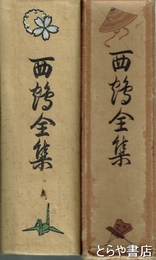 西鶴全集
西鶴全集
とらや書店